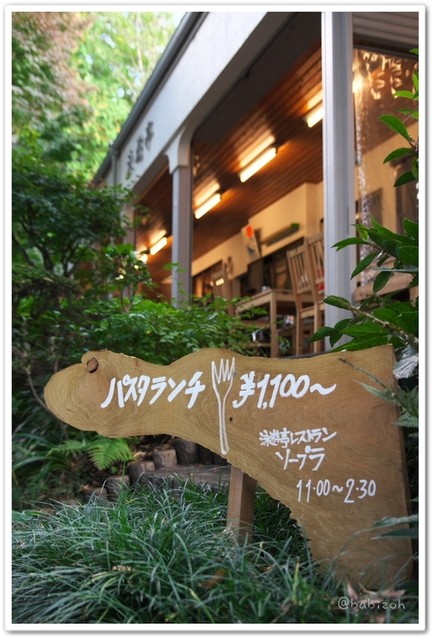 パスタランチ ¥1,100〜
泳遊亭レストラン
ソープラ
11:00〜2:30
@babizoh